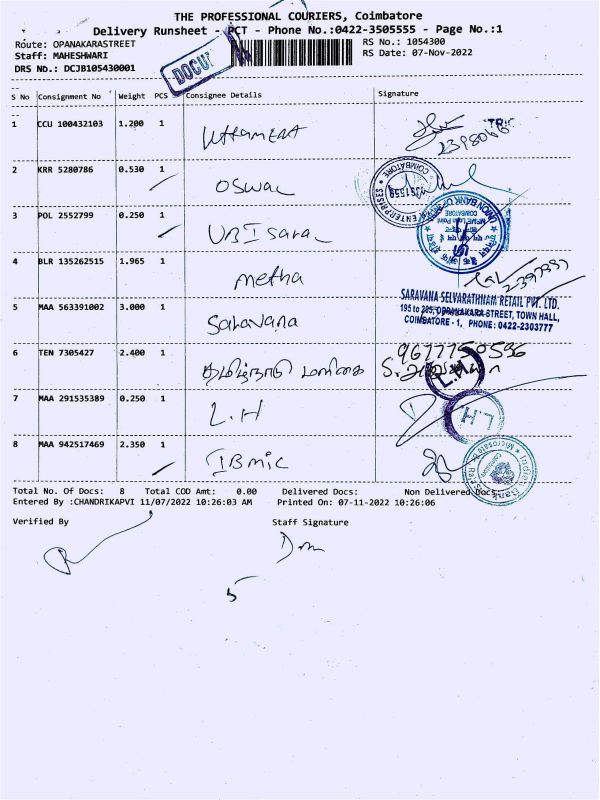 THE PROFESSIONAL COURIERS, Coimbatore
Delivery Runsheet - PCT - Phone No.:0422-3505555 - Page No.:1
Route: OPANAKARASTREET RS No.: 1054300
Staff: MAHESHWARI RS Date: 07-Nov-2022
DRS No.: DCJB105430001
DOCU
S No Consignment No Weight PCS Consignee Details Signature
1 CCU 100432103 1.200 1
2 KRR 5280786 0.530 1 OSWAL
COIMBATORE
ENTERPRISES
3 POL 2552799 0.250 1 UBI Sara
UNION BANK OF INDIA
COIMBATORE
4 BLR 135262515 1.965 1 metha
5 MAA 563391002 3.000 1 Saravana
SARAVANA SELVARATHNAM RETAIL PVT. LTD.
195 to 205, OPPANAKARA STREET, TOWN HALL,
COIMBATORE - 1, PHONE : 0422-2303777
6 TEN 7305427 2.400 1 தமிழ்நாடு மளிகை
L.H
7 MAA 291535389 0.250 1 L.H L.H
8 MAA 942517469 2.350 1 IBmic
Indian Bank
Total No. Of Docs: 8 Total COD Amt: 0.00 Delivered Docs: Non Delivered Docs:
Entered By :CHANDRIKAPVI 11/07/2022 10:26:03 AM Printed On: 07-11-2022 10:26:06
Verified By Staff Signature
5